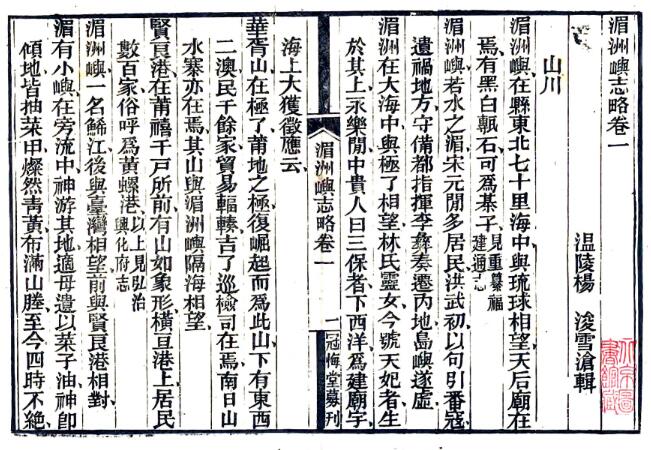 湄洲嶼志略卷一
温陵楊　浚雪滄輯
山川
湄洲嶼在縣東北七十里海中與琉球相望天后廟在
焉有黑白瓤石可爲棊子見重纂福建通志
湄洲嶼若水之湄宋元閒多居民洪武初以句引番寇
遺禍地方守備都指揮李彝奏遷內地島嶼遂虛
湄洲在大海中與極了相望林氏靈女今號天妃者生
於其上永樂閒中貴人曰三保者下西洋爲建廟宇
湄洲嶼志略卷一
一
冠悔堂募刊
海上大獲徵應云
華胥山在極了莆地之極復崛起而爲此山下有東西
二澳民千餘家貿易輻輳吉了巡檢司在焉南日山
水寨亦在焉其山與湄洲嶼隔海相望
賢良港在莆禧千戶所前有山如象形橫亘港上居民
數百家俗呼爲黃螺港以上見弘治興化府志
湄洲嶼一名鯑江後與臺灣相望前與賢良港相對
湄有小嶼在旁流中神游其地適母遺以菜子油神卽
傾地皆抽菜甲燦然青黃布滿山塍至今四時不絕